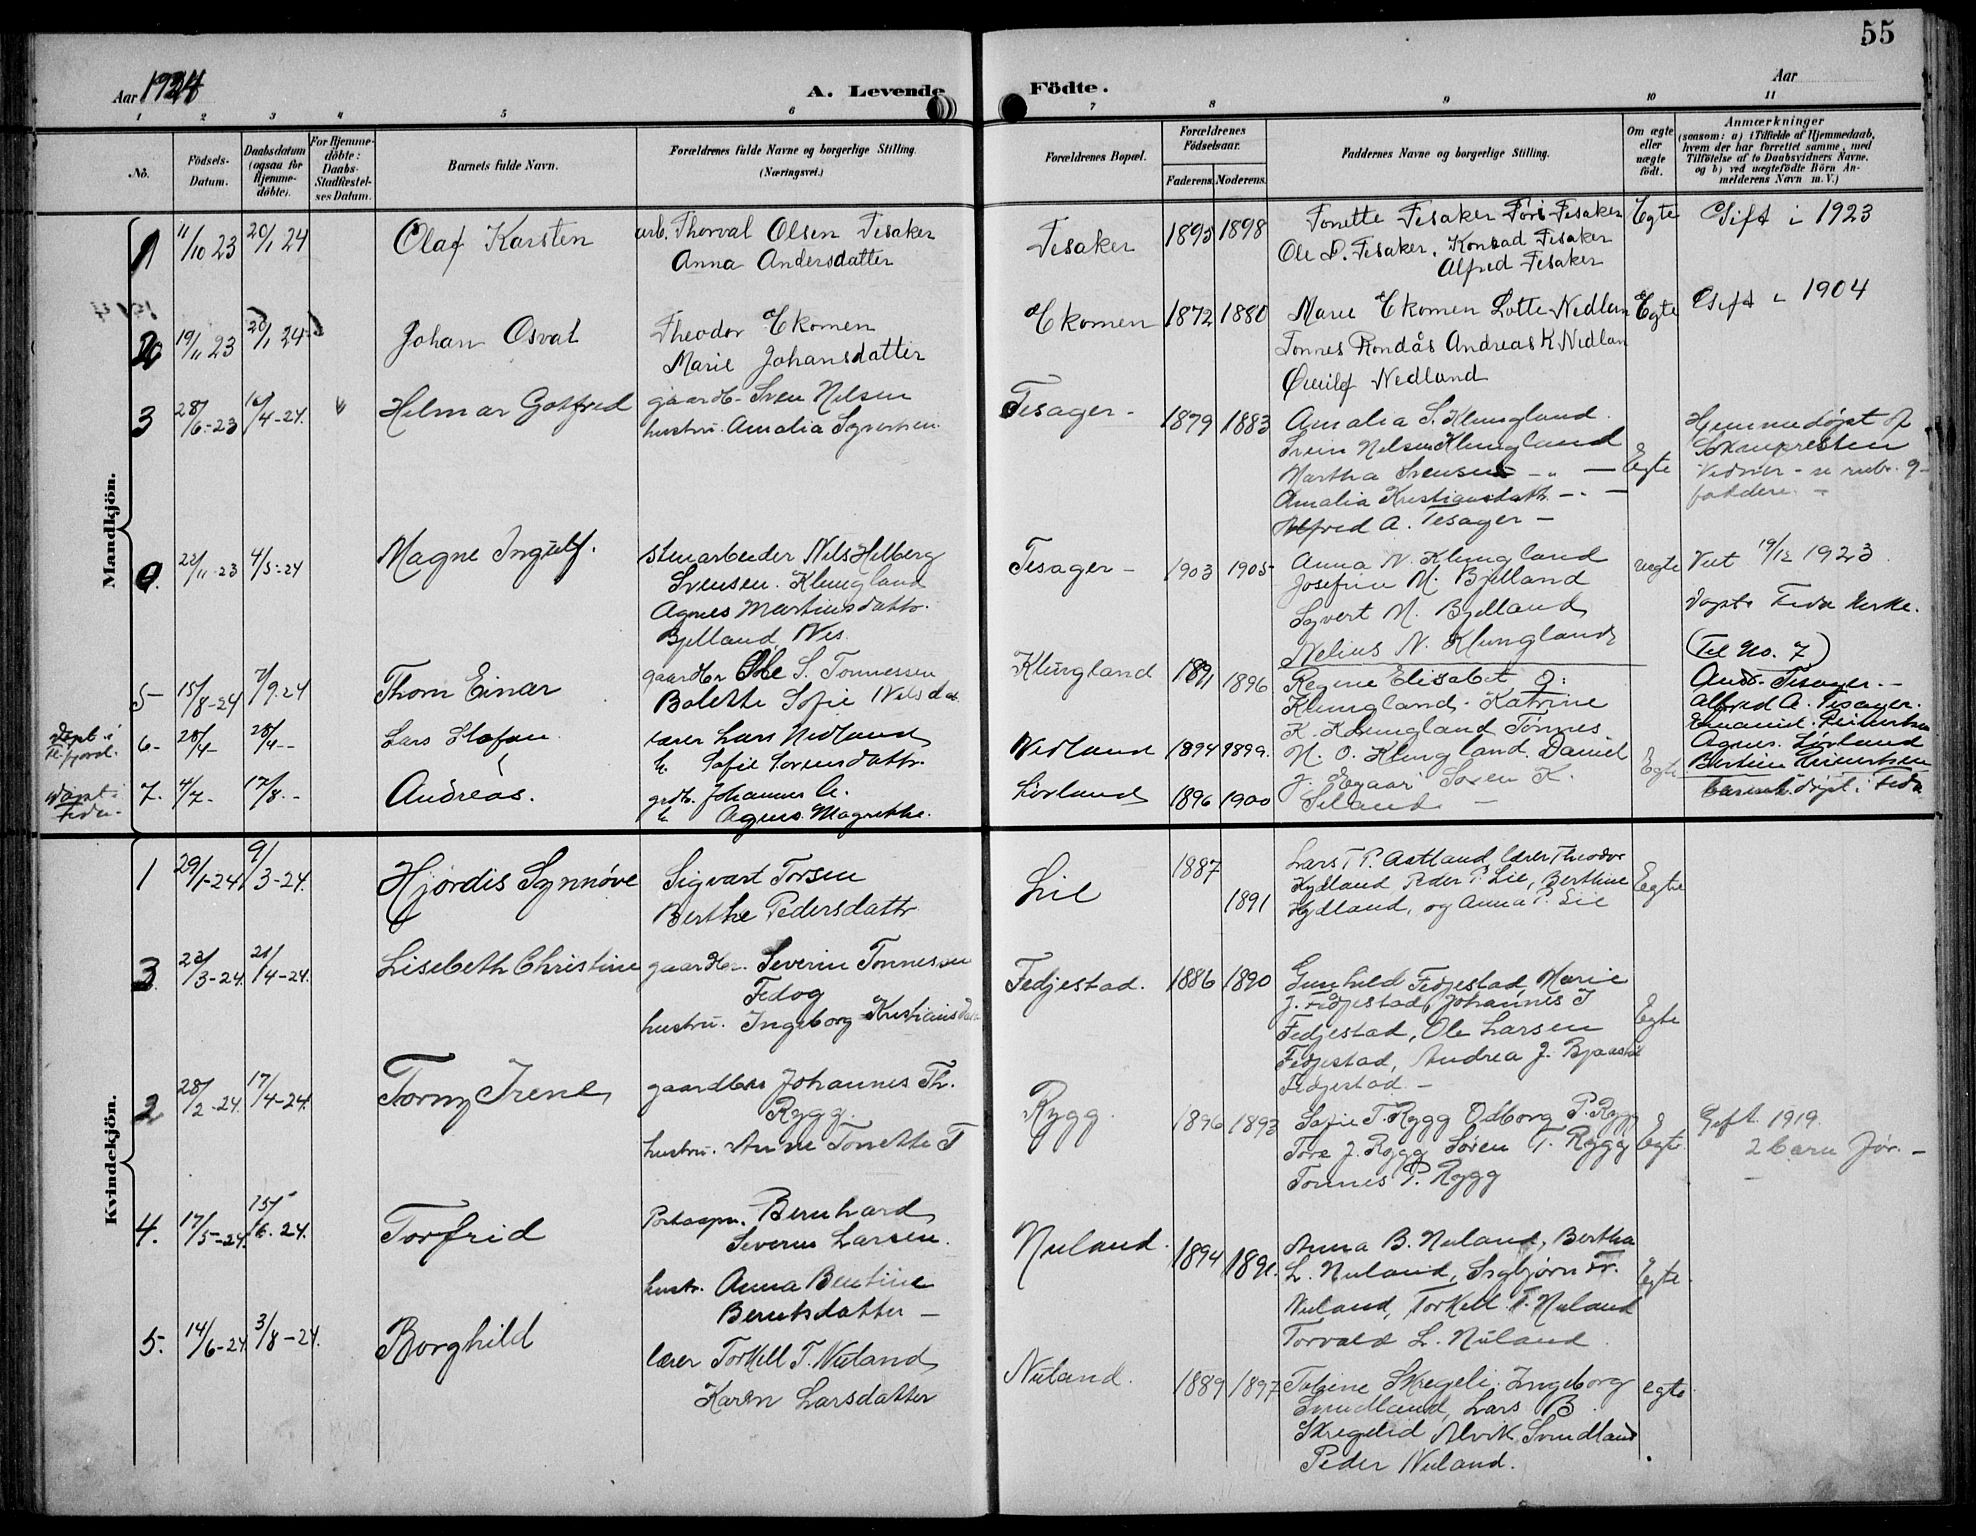 55
Aar 1924
A. Levende
Födte.
Aar
1 2 3 4 5 6 7 8 9 10 11
No.
Födsels-
Datum.
Daabsdatum
(ogsaa for
Hjemme-
döbte).
For Hjemme-
döbte:
Daabs-
Stadfæstel-
ses Datum.
Barnets fulde Navn.
Forældrenes fulde Navne og borgerlige Stilling.
(Næringsvei.)
Forældrenes Bopæl.
Forældrenes
Födselsaar.
Faderens. Moderens.
Faddernes Navne og borgerlige Stilling.
Om ægte
eller
uægte
födt.
Anmærkninger
(saasom: a) i Tilfælde af Hjemmedaab,
hvem der har forrettet samme, med
Tilföielse af to Daabsvidners Navne.
og b) ved uægtefödte Börn An-
melderens Navn m. V.)
Mandkjön.
1 11/10 23 20/1 24 Olaf Karsten
arb. Thorval Olsen Fesaker
Anna Andersdatter
Fesaker 1895 1898
Tonette Fesaker Föri Fesaker
Ole D. Fesaker, Konrad Fesaker
Alfred Fesaker
Egte Gift i 1923
2 19/11 23 20/1 24 Johan Osval
Theodor Ekomen
Marie Johansdatter
Ekomen 1872 1880
Marie Ekomen Lotte Nedlan
Tonnes Rondås Andreas K Nedlan
Nedland
Egte Gift i 1904
3 28/6-23 16/4-24. Helmar Gotfred
gaardbr. Sven Nilsen
hustru. Amalia Syvertsen.
Fesager - 1879 1883
Amalia S. Klungland.
Svein Nilsen Klungland
Martha Svensen - „ -
Amalia Kristiansdatt - . -
Alfred A. Fesager -
Egte
Hjemmedøpt af
Soknepresten
Vidner - se rubr. 9-
faddere. -
22/11-23 4/5-24 Magne Ingulf.
Stenarbeider Nils Hilberg
Svensen. Klungland
Agnes Martinsdattr.
Bjelland, Nes.
Fesager - 1903 1905
Anna N. Klungland
Josefine M. Bjelland
Syvert M. Bjelland
Nelius N. Klungland
uegte
Viet 19/12 1923.
Døpt i Feda Kirke.
5- 15/8-24 7/9.24 Thom Einar
gaardbr Ole S. Tonnessen
Bolette Sofie Nilsda
Klungland 1891 1896
Regine Elisabet O:
Klungland. Katrine
K. Klungland Tønnes.
N. O. Klungland. Daniel
J. Egaar Søren K.
Seland -
(Til No. 7)
Andr. Fesager.-
Alfred A. Fesager.
Emanuel. Reinertsen
Agnes. Lövland
Bertine Reinertsen
barnet døpt i Feda
døpt i
Fefjord.
6- 28/4- 28/4-- Lars Stefan
lærer Lars Nedland
h. Sofie Sørensdattr.
Nedland 1894 1899.
Egte
døpt i
Feda.
7. 4/7- 17/8.- Andreas.
grdb. Johannes A.
h. Agnes Magrethe.
Lövland 1896 1900
Kvindekjön.
1 29/1-24 9/3-24. Hjördis Synnöve
Sigvart Torsen
Berthe Pedersdattr.
Lie 1887 1891
Lars T P. Aatland, lærer Theodor
Hydland Peder P. Lie, Berthine
Hydland, og Anna P. Lie
Egte
3 23/3-24. 21/4-24. Lisebeth Christine
gaardbr. Severin Tonnessen
Fedog
hustru. Ingeborg Kristiansda
Fedjestad. 1886 1890
Gunhild Fedjestad, Marie
J. Fedjestad, Johannes J
Fedjestad, Ole Larsen
Fedjestad, Andrea J. Bjaastad
Fedjestad. -
Egte
2 28/2-24. 17/4-24. Torny Irene
gaardbr Johannes Th.
Rygg.
hustru. Anne Tonette T
Rygg. 1896 1893
Sofie T. Rygg Odborg P. Rygg
Tore J. Rygg Søren T. Rygg
Tonnes P. Rygg
Egte.
Gift. 1919.
2 barn før. -
4. 17/5-24. 15/6-24. Torfrid
Postaapn. Bernhard
Severin Larsen.
hustr. Anna Bentine
Berntsdatter -
Nuland. 1894 1891.
Anna B. Nuland, Bertha
L. Nuland, Asbjørn Fr.
Nuland, Torkell T. Nuland
Torvald L. Nuland.
Egte.
5. 14/6-24. 3/8-24. Borghild
lærer Torkell T. Nuland
Karen Larsdatter
Nuland. 1889 1897
Tobine Skregeli. Ingeborg
Svindland, Lars B.
Skregelid Alvik Svindland
Peder Nuland.
egte.